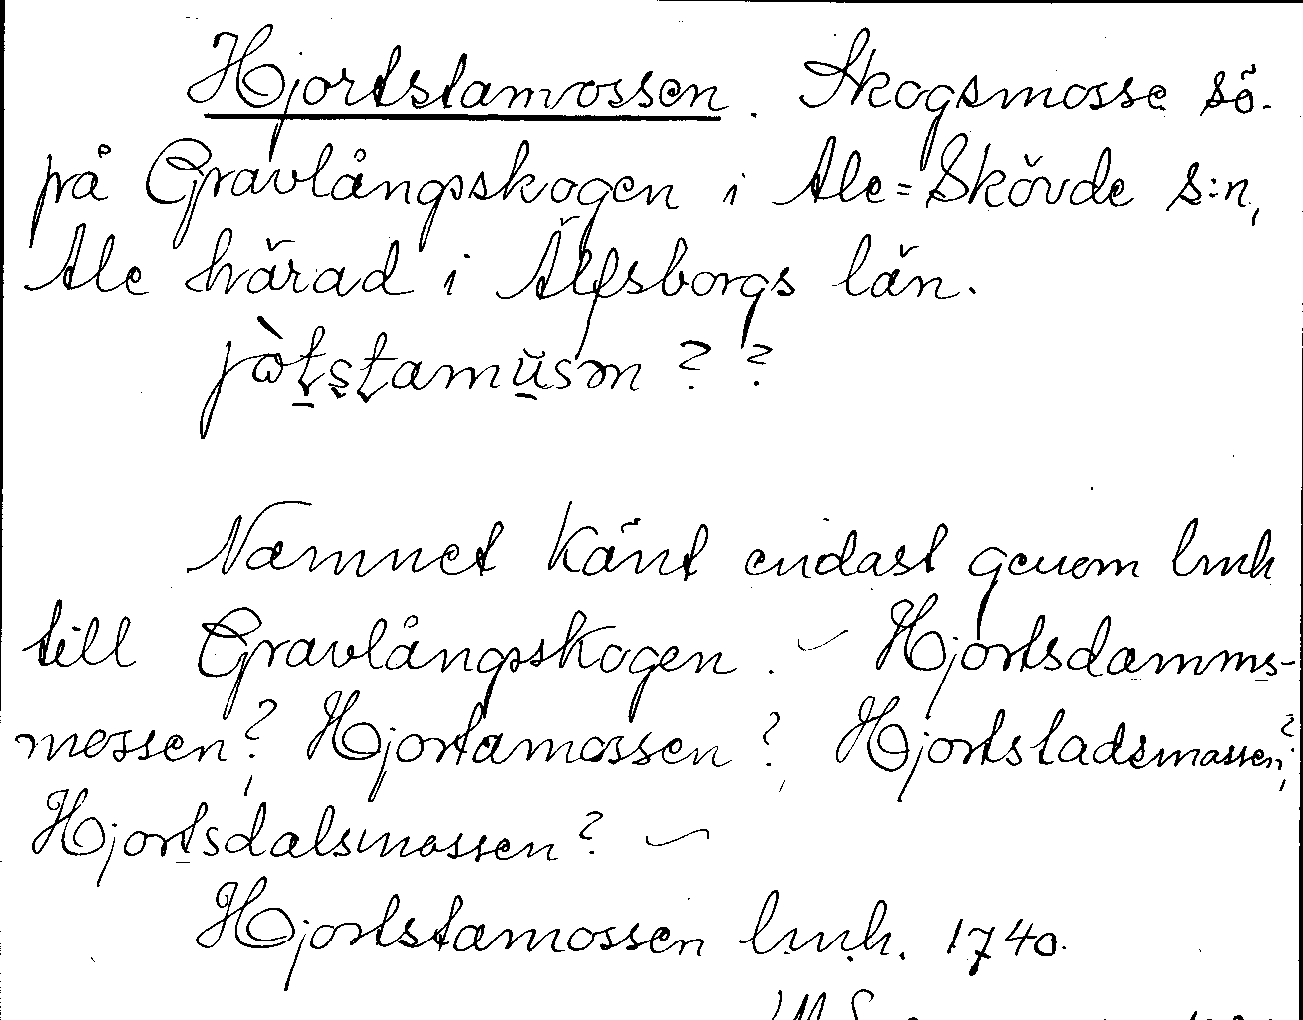 Hjortstamossen. Skogsmosse sö.
på Gravlångsskogen i Ale=Skövde s:n,
Ale härad i Älfsborgs län.
jòtstamŭsm ? ?
Namnet känt endast genom lmh
till Gravlångsskogen. – Hjortsdamms-
mossen?, Hjortamossen?, Hjortstadsmossen?,
Hjortsdalsmossen? –
Hjortstamossen lmh. 1740.